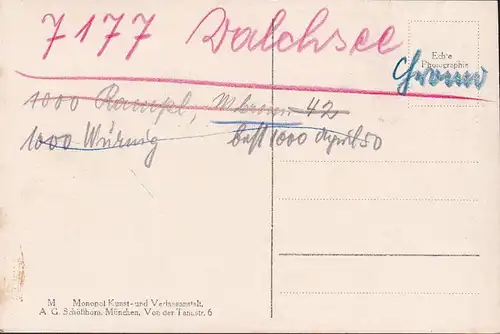 7177 Walchsee
Echte
Photographie
Chromo
1000 Rampf, Mkronen 42
1000 Würnig best 1000 April 50
M Monopol Kunst- und Verlagsanstalt,
A. G. Schöllhorn, München, Von der Tannstr. 6